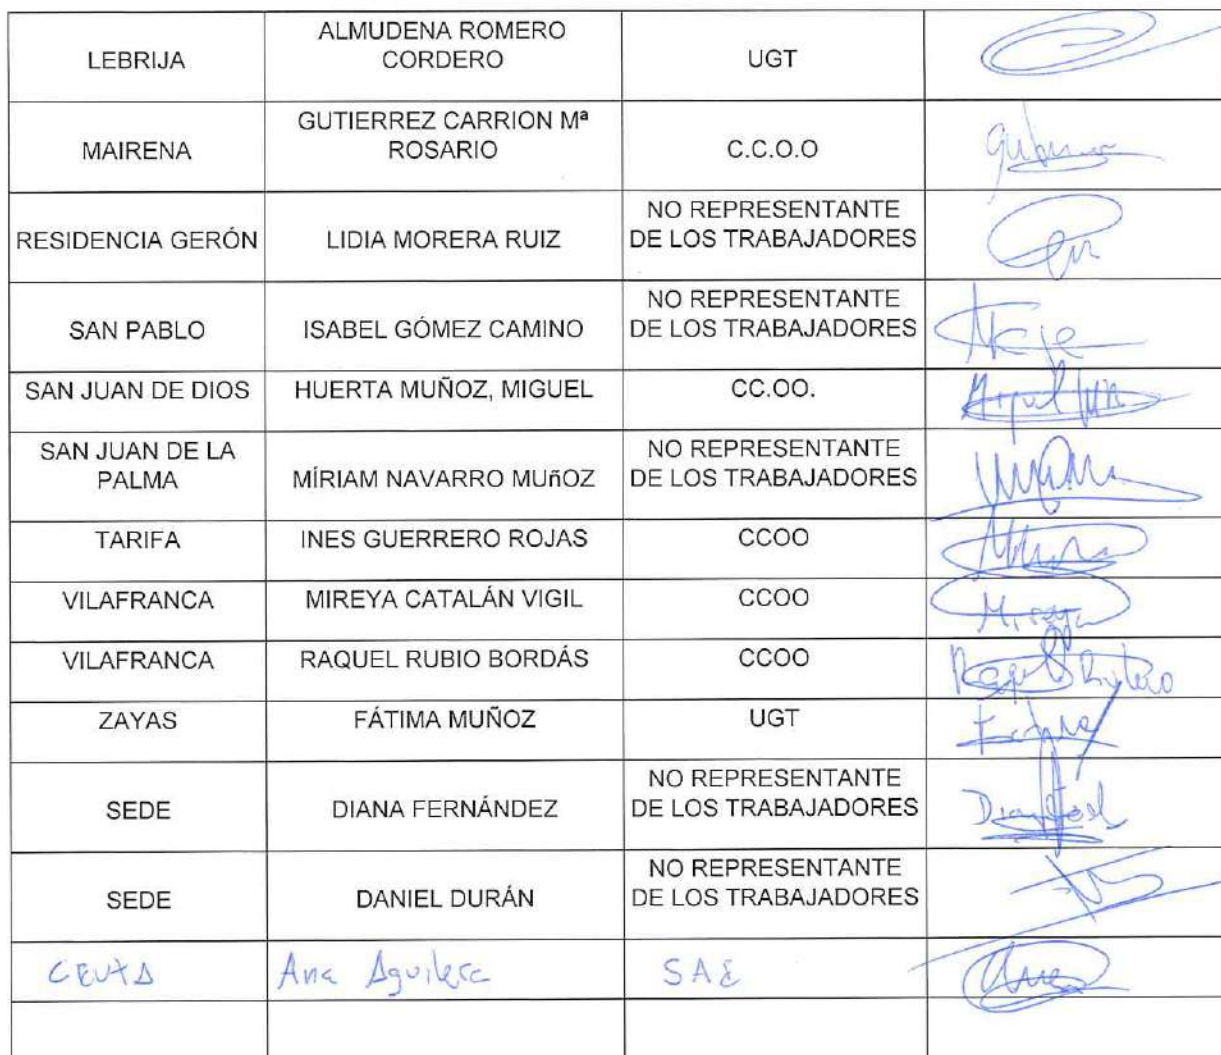 LEBRIJA
ALMUDENA ROMERO
CORDERO
UGT
MAIRENA
GUTIERREZ CARRION Mª
ROSARIO
C.C.O.O
RESIDENCIA GERÓN
LIDIA MORERA RUIZ
NO REPRESENTANTE
DE LOS TRABAJADORES
SAN PABLO
ISABEL GÓMEZ CAMINO
NO REPRESENTANTE
DE LOS TRABAJADORES
SAN JUAN DE DIOS
HUERTA MUÑOZ, MIGUEL
CC.OO.
SAN JUAN DE LA
PALMA
MÍRIAM NAVARRO MUñOZ
NO REPRESENTANTE
DE LOS TRABAJADORES
TARIFA
INES GUERRERO ROJAS
CCOO
VILAFRANCA
MIREYA CATALÁN VIGIL
CCOO
VILAFRANCA
RAQUEL RUBIO BORDÁS
CCOO
ZAYAS
FÁTIMA MUÑOZ
UGT
SEDE
DIANA FERNÁNDEZ
NO REPRESENTANTE
DE LOS TRABAJADORES
SEDE
DANIEL DURÁN
NO REPRESENTANTE
DE LOS TRABAJADORES
CEUTA
Ana Aguilera
SAE